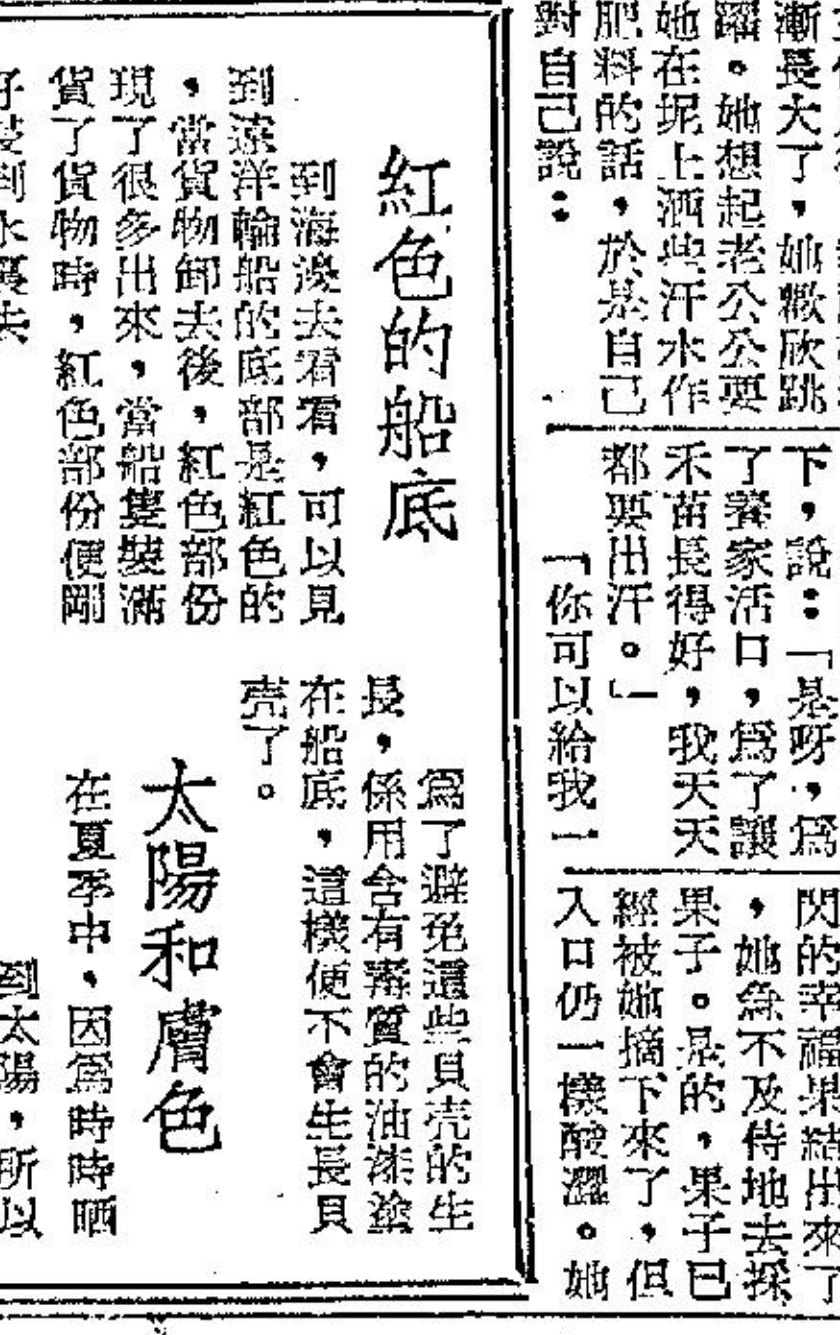 漸長大了，她歡欣跳
躍。她想起老公公要
她在坭上洒些汗水作
肥料的話，於是自己
對自己說：
下，說：「是呀，爲
了養家活口，爲了讓
禾苗長得好，我天天
都要出汗。」
「你可以給我一
閃的幸福果結出來了
，她急不及待地去採
果子。是的，果子已
經被她摘下來了，但
入口仍一樣酸澀。她
紅色的船底
到海邊去看看，可以見
到遠洋輪船的底部是紅色的
，當貨物卸去後，紅色部份
現了很多出來，當船隻裝滿
貨了貨物時，紅色部份便剛
好浸到水裏去
爲了避免這些貝壳的生
長，係用含有毒質的油漆塗
在船底，這樣便不會生長貝
壳了。
太陽和膚色
在夏季中，因爲時時晒
到太陽，所以